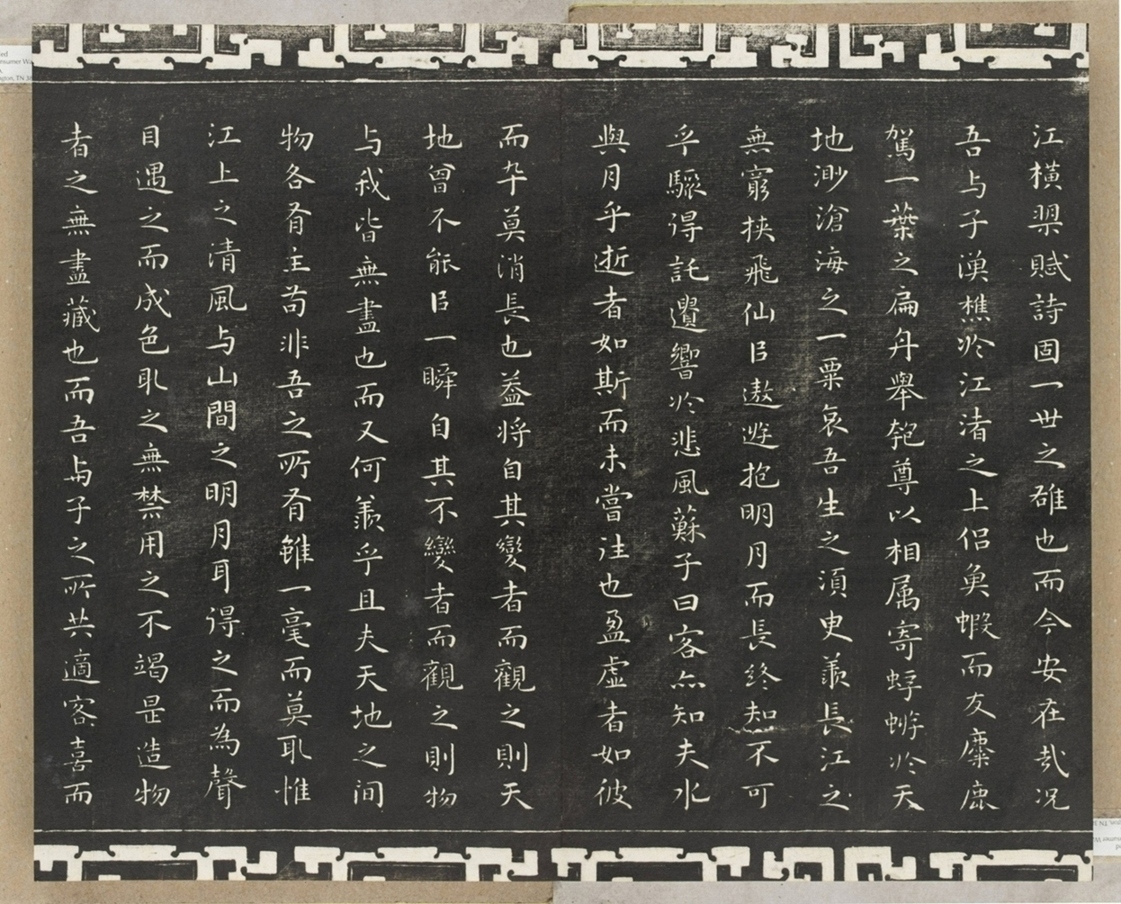 江橫槊賦詩固一世之雄也而今安在哉况
吾与子漁樵於江渚之上侣魚蝦而友麋鹿
駕一葉之扁舟舉匏尊以相属寄蜉蝣於天
地渺滄海之一粟哀吾生之須臾羨長江之
無窮挟飛仙㠯遨遊抱明月而長終知不可
乎驟得託遺響於悲風蘇子曰客亦知夫水
與月乎逝者如斯而未嘗往也盈虚者如彼
而卒莫消長也葢将自其變者而觀之則天
地曾不能㠯一瞬自其不變者而觀之則物
与我皆無盡也而又何羨乎且夫天地之间
物各有主苟非吾之所有雖一毫而莫取惟
江上之清風与山間之明月耳得之而為聲
目遇之而成色取之無禁用之不竭是造物
者之無盡藏也而吾与子之所共適客喜而